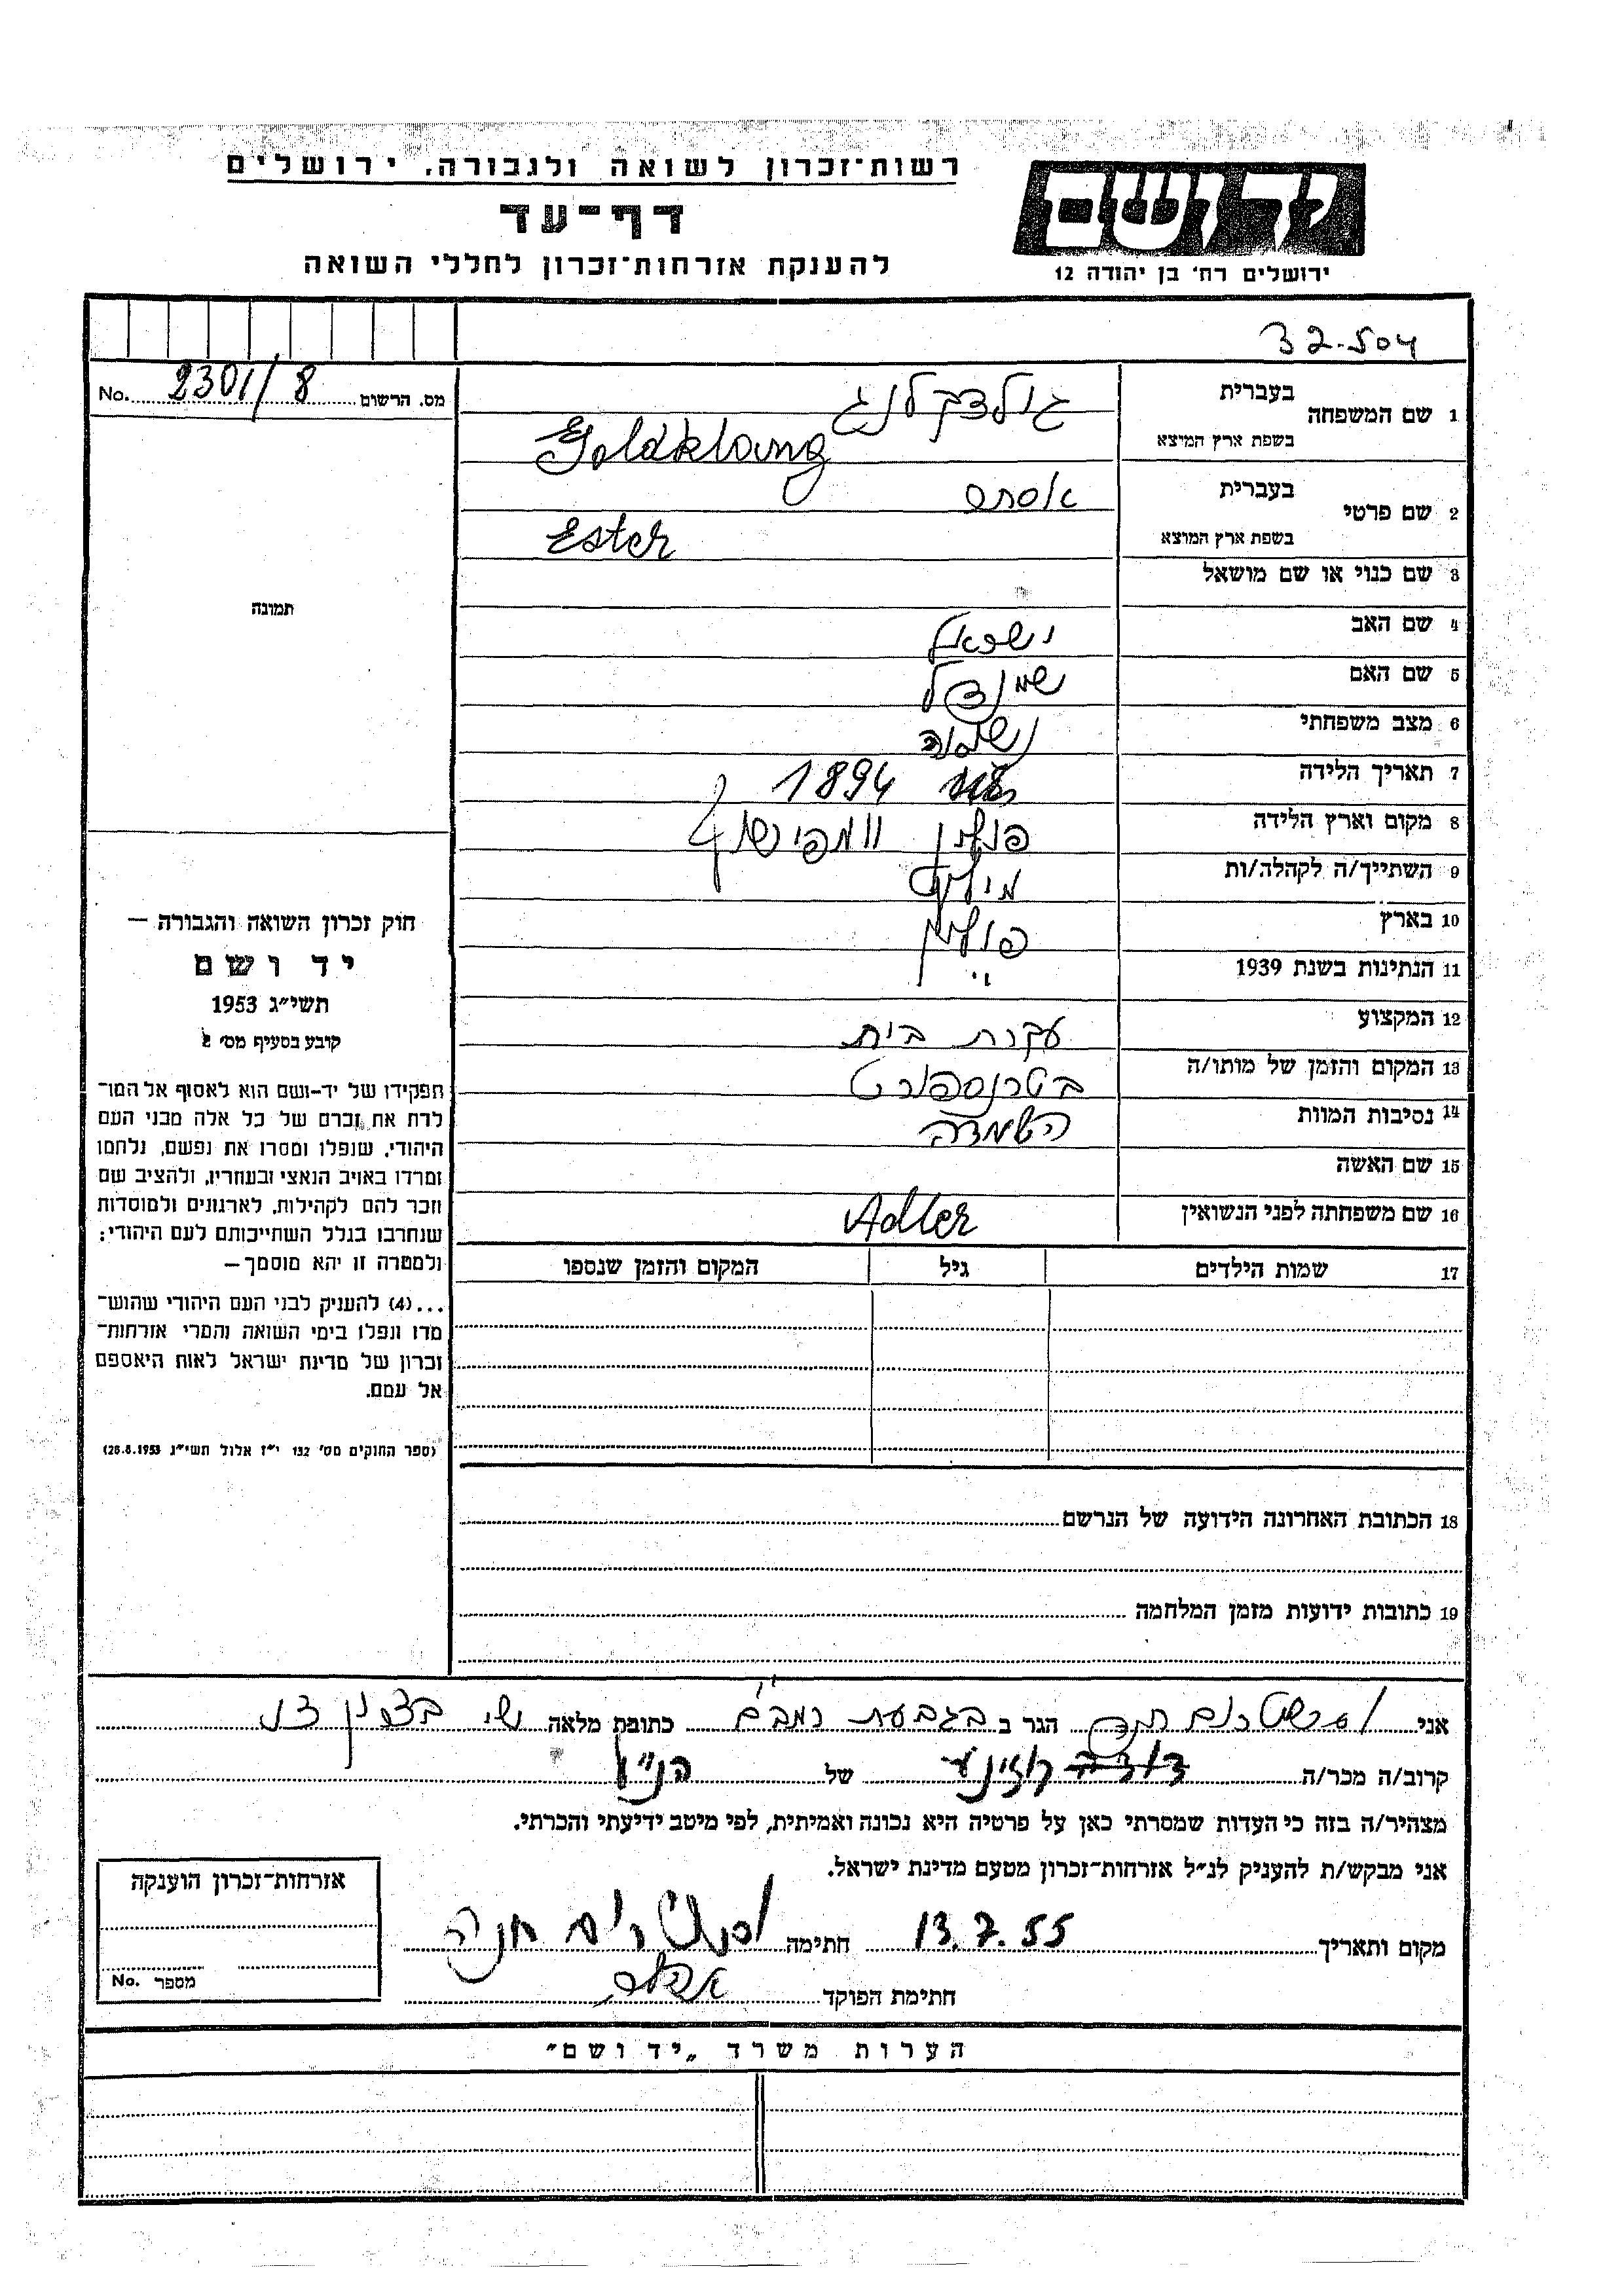 רשות־זכרון לשואה ולגבורה, ירושלים
דף־עד
להענקת אזרחות־זכרון לחללי השואה
ידושם
ירושלים רח׳ בן יהודה 12
32.504
מס. הרשום 2301/8 No.
1 שם המשפחה בעברית גולדקלנג
בשפת ארץ המוצא Goldklang
2 שם פרטי בעברית אסתר
בשפת ארץ המוצא Ester
3 שם כנוי או שם מושאל
4 שם האב ישראל
5 שם האם שיינדל
6 מצב משפחתי נשואה
7 תאריך הלידה 1894
8 מקום וארץ הלידה פולין
9 השתייך/ה לקהלה/ות
10 בארץ פולין
11 הנתינות בשנת 1939 "
12 המקצוע עקרת בית
13 המקום והזמן של מותו/ה בטרנספורט
14 נסיבות המוות השמדה
15 שם האשה
16 שם משפחתה לפני הנשואין Adler
17 שמות הילדים גיל המקום והזמן שנספו
18 הכתובת האחרונה הידועה של הנרשם
19 כתובות ידועות מזמן המלחמה
תמונה
חוק זכרון השואה והגבורה —
יד ושם
תשי״ג 1953
קובע בסעיף מס׳ 2
תפקידו של יד-ושם הוא לאסוף אל המו־
לדת את זכרם של כל אלה מבני העם
היהודי, שנפלו ומסרו את נפשם, נלחמו
ומרדו באויב הנאצי ובעוזריו, ולהציב שם
וזכר להם לקהילות, לארגונים ולמוסדות
שנחרבו בגלל השתייכותם לעם היהודי;
ולמטרה זו יהא מוסמך —
...(4) להעניק לבני העם היהודי שהוש־
מדו ונפלו בימי השואה והמרי אזרחות־
זכרון של מדינת ישראל לאות היאספם
אל עמם.
(ספר החוקים מס׳ 132 י״ז אלול תשי״ג 28.8.1953)
אני חנה הגר ב בגבעת רמב״ם כתובת מלאה
קרוב/ה מכר/ה של הנ״ל
מצהיר/ה בזה כי העדות שמסרתי כאן על פרטיה היא נכונה ואמיתית, לפי מיטב ידיעתי והכרתי.
אני מבקש/ת להעניק לנ״ל אזרחות־זכרון מטעם מדינת ישראל.
מקום ותאריך 13.7.55 חתימה חנה
חתימת הפוקד
אזרחות־זכרון הוענקה
מספר No.
הערות משרד „יד ושם״